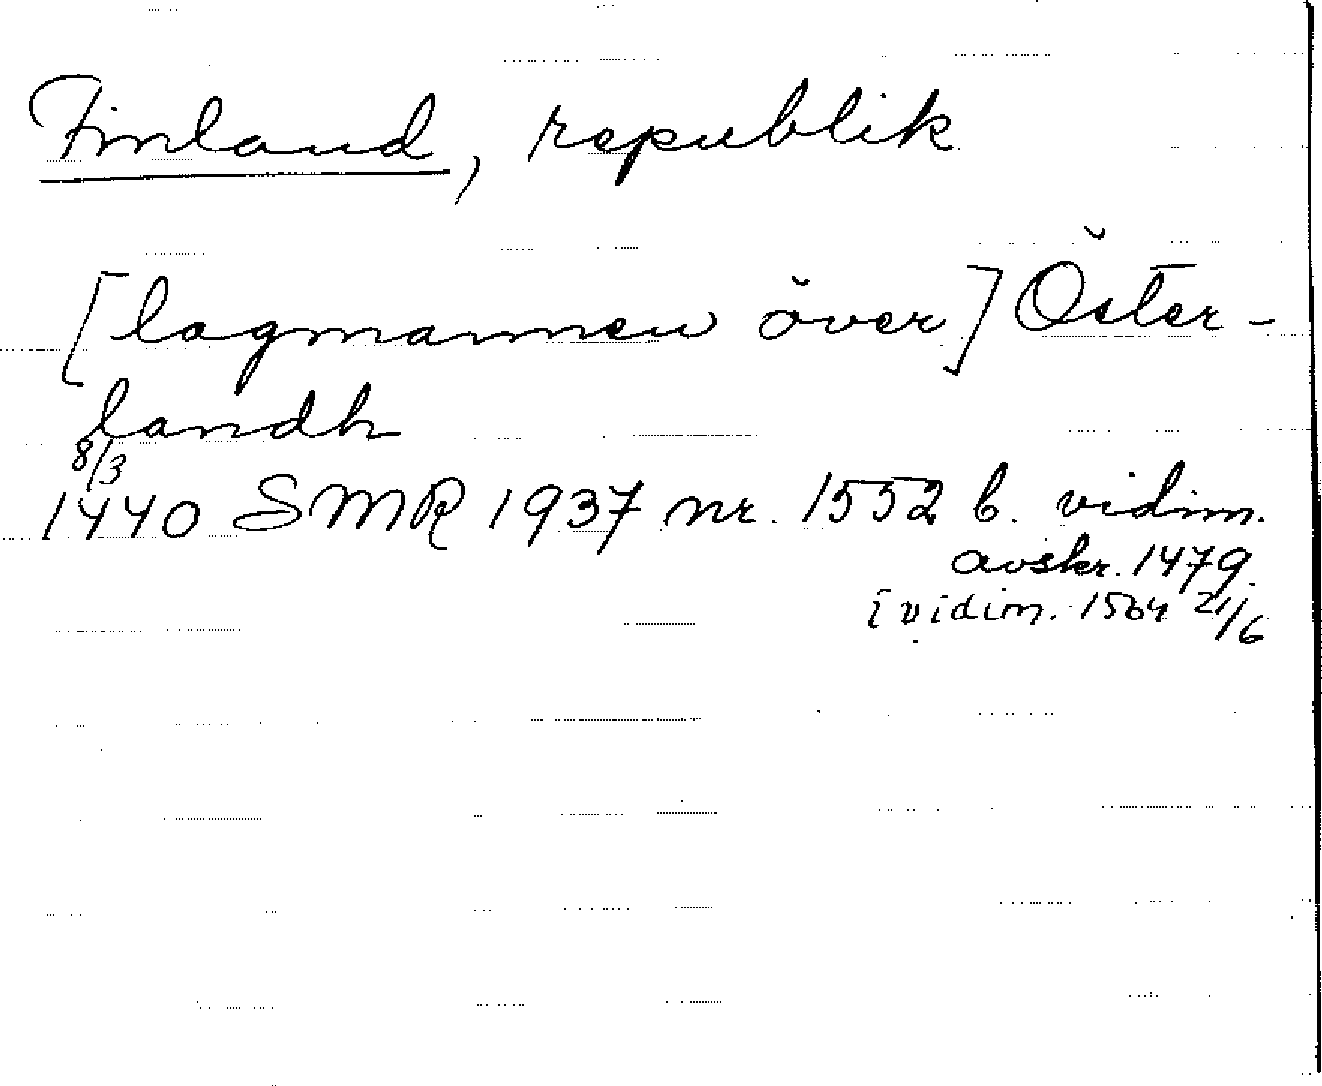 Finland, republik
[lagmannen över] Öster-
landh
8/3
1440 SMR 1937 nr. 1552 b. vidim.
avskr. 1479.
[vidim. 1504 21/6